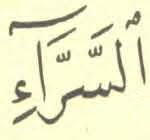 اَلسَّرَّآءِ